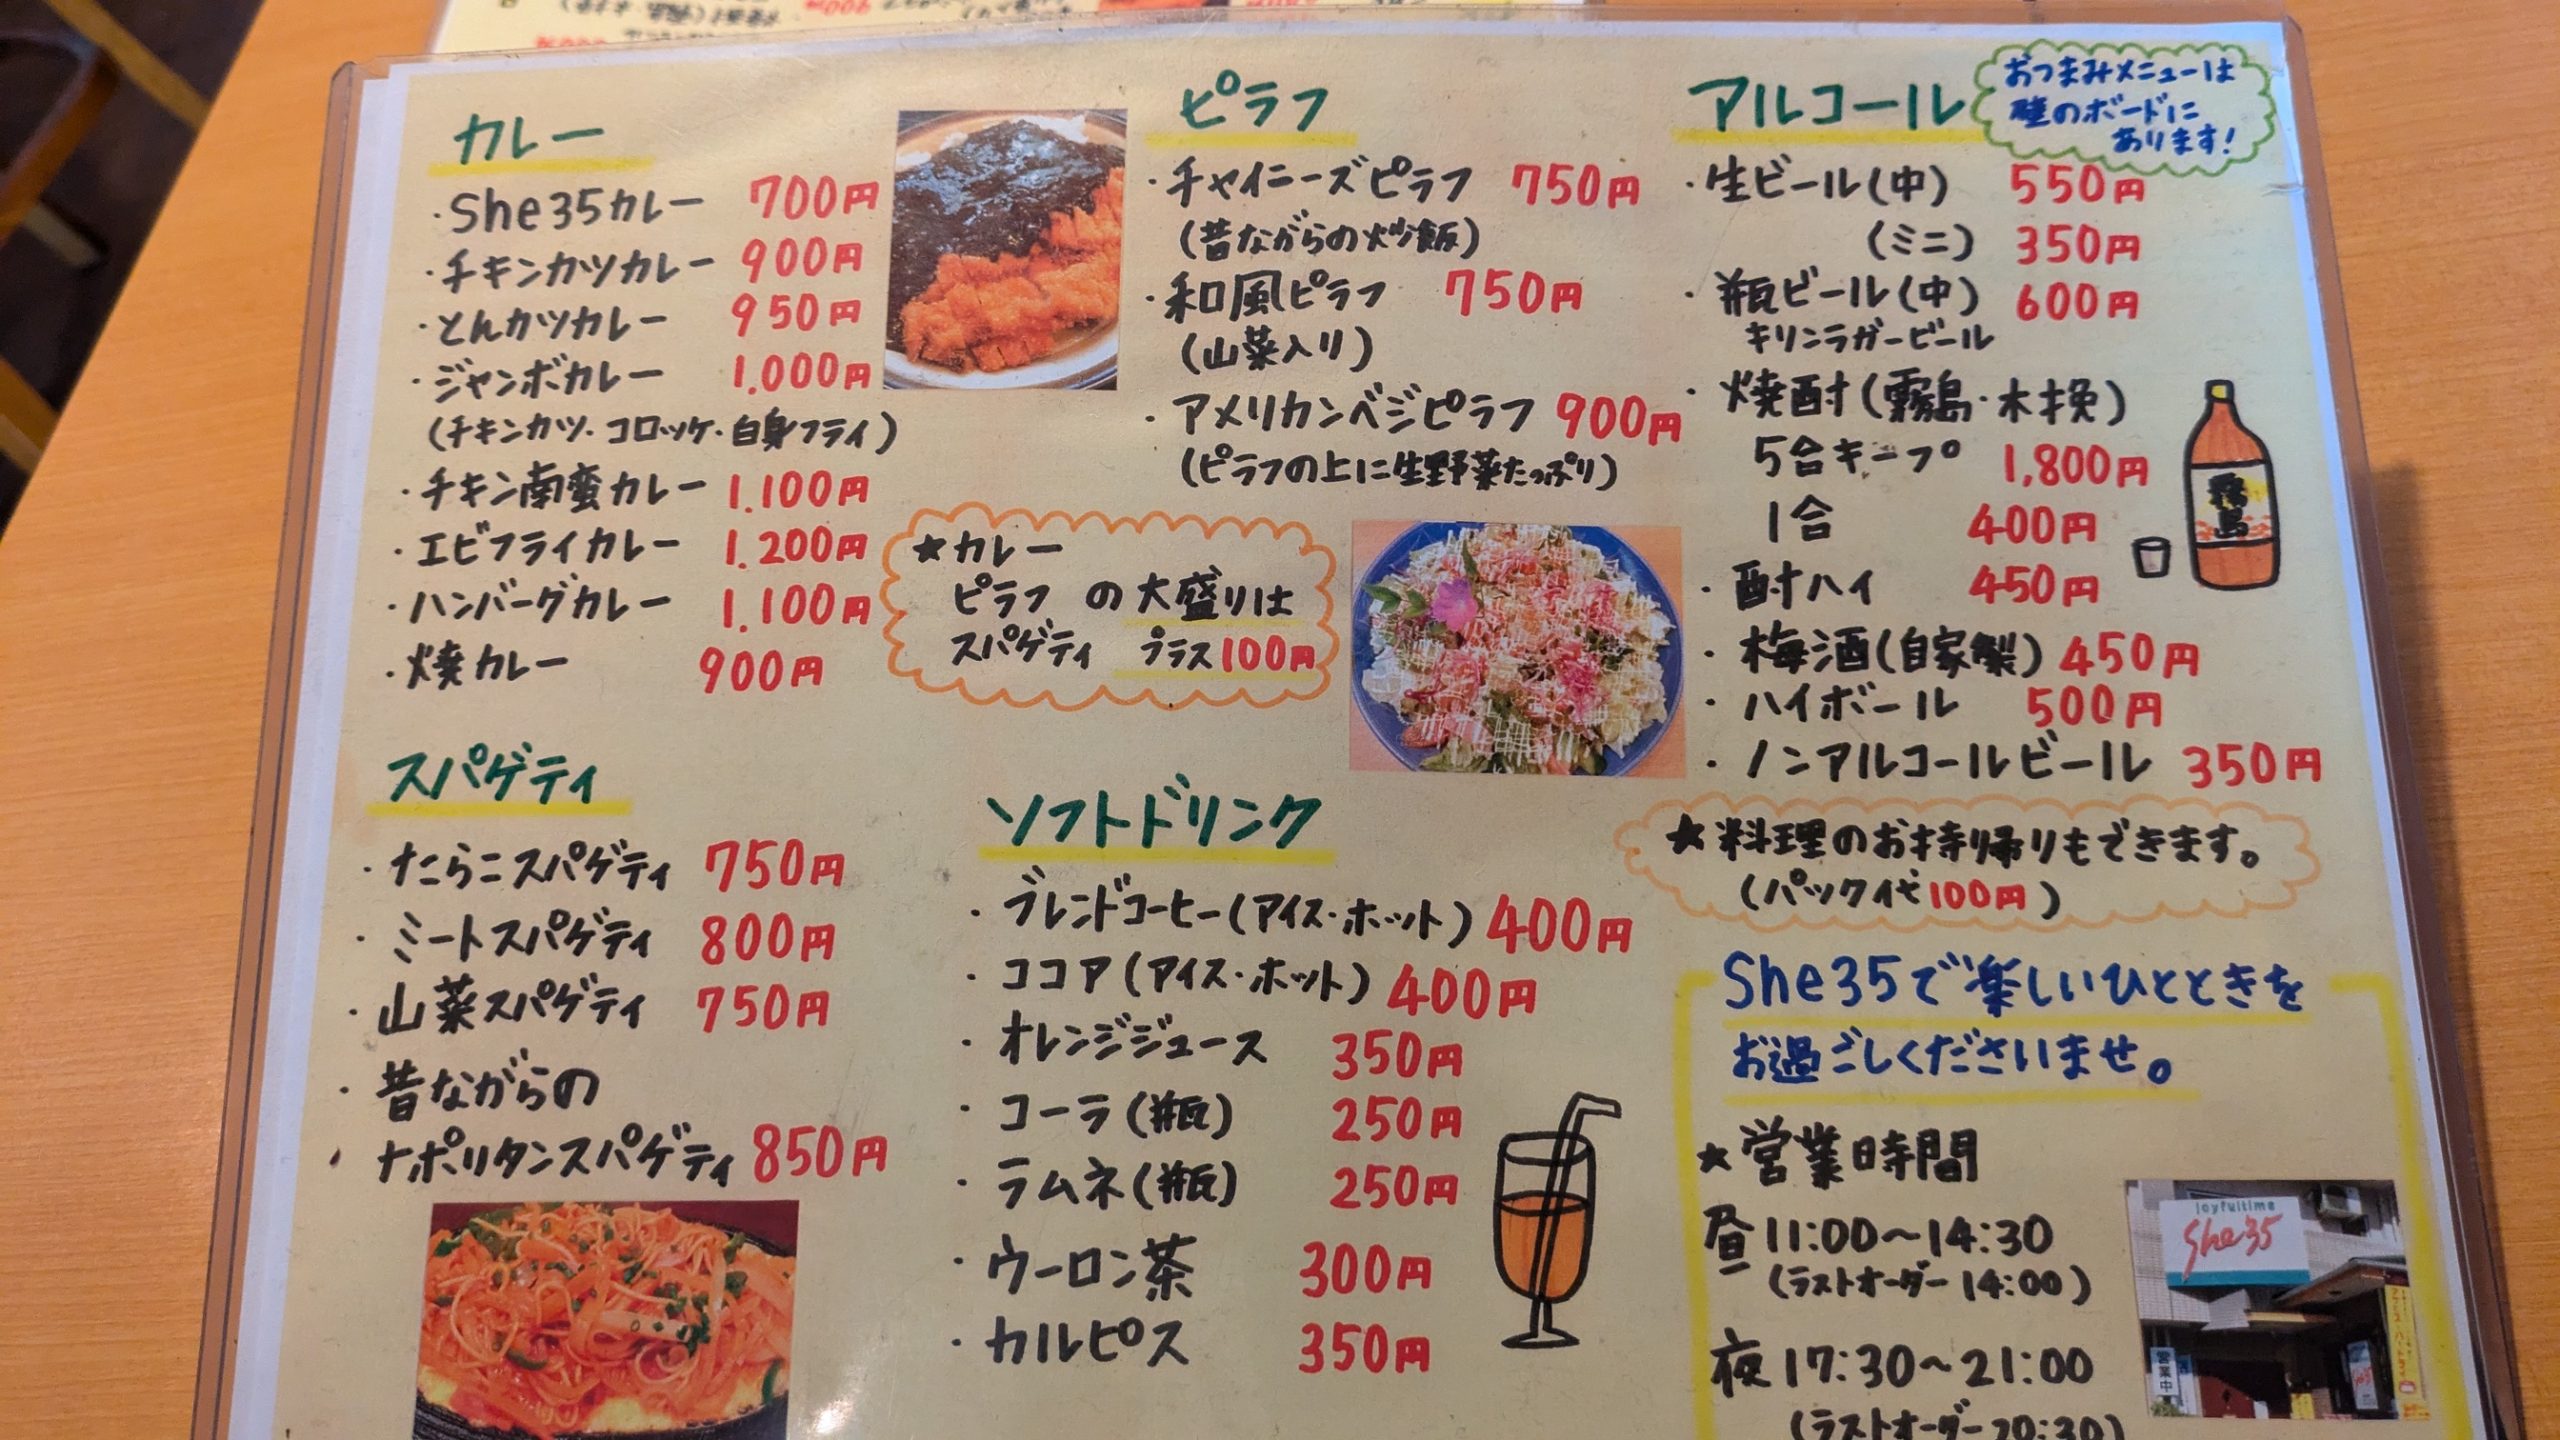 カレー
・She35カレー 700円
・チキンカツカレー 900円
・とんカツカレー 950円
・ジャンボカレー 1.000円
(チキンカツ・コロッケ・白身フライ)
・チキン南蛮カレー 1.100円
・エビフライカレー 1.200円
・ハンバーグカレー 1.100円
・焼カレー 900円
スパゲティ
・たらこスパゲティ 750円
・ミートスパゲティ 800円
・山菜スパゲティ 750円
・昔ながらの
ナポリタンスパゲティ 850円
ピラフ
・チャイニーズピラフ 750円
(昔ながらの炒飯)
・和風ピラフ 750円
(山菜入り)
・アメリカンベジピラフ 900円
(ピラフの上に生野菜たっぷり)
★カレー
ピラフ の大盛りは
スパゲティ プラス100円
ソフトドリンク
・ブレンドコーヒー(アイス・ホット) 400円
・ココア(アイス・ホット) 400円
・オレンジジュース 350円
・コーラ(瓶) 250円
・ラムネ(瓶) 250円
・ウーロン茶 300円
・カルピス 350円
アルコール
おつまみメニューは
壁のボードに
あります!
・生ビール(中) 550円
(ミニ) 350円
・瓶ビール(中) 600円
キリンラガービール
・焼酎(霧島・木挽)
5合キープ 1,800円
1合 400円
・酎ハイ 450円
・梅酒(自家製) 450円
・ハイボール 500円
・ノンアルコールビール 350円
霧島
★料理のお持り帰りもできます。
(パック代100円)
She35で楽しいひとときを
お過ごしくださいませ。
★営業時間
昼11:00～14:30
(ラストオーダー 14:00)
夜17:30～21:00
(ラストオーダー 20:30)
joyfultime
She35
営業中